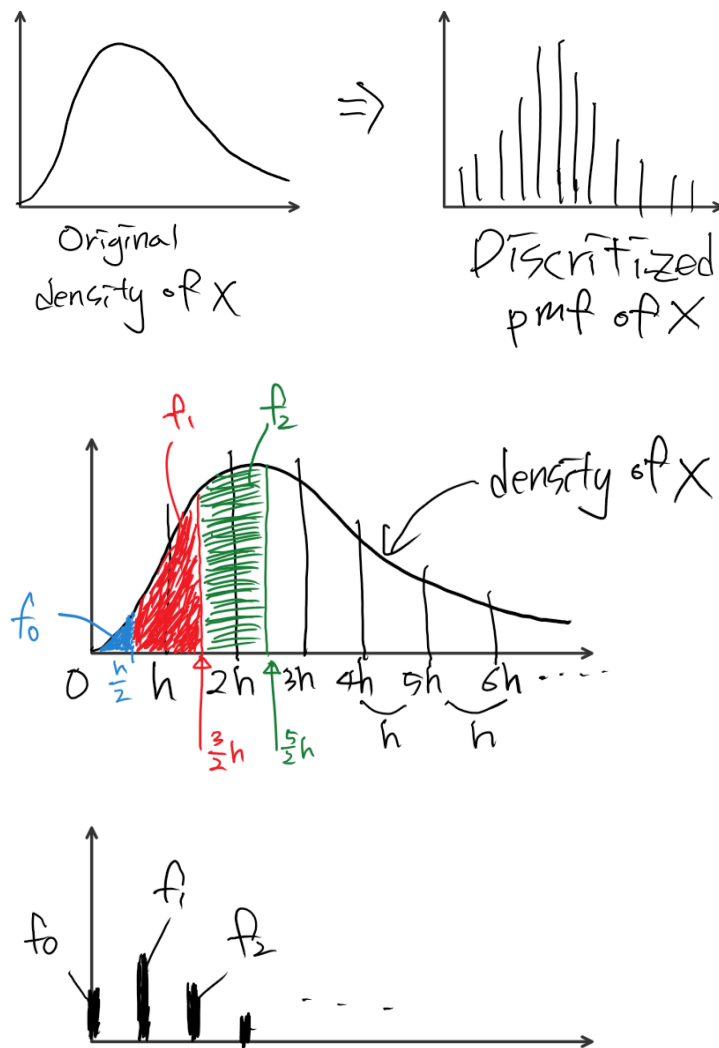 ⇒
Original
density of X
Discritized
pmf of X
f₁
f₂
density of X
f₀
0 h/2 h 2h 3h 4h 5h 6h ....
h h
3/2 h 5/2 h
f₁
f₀ f₂
- - - -